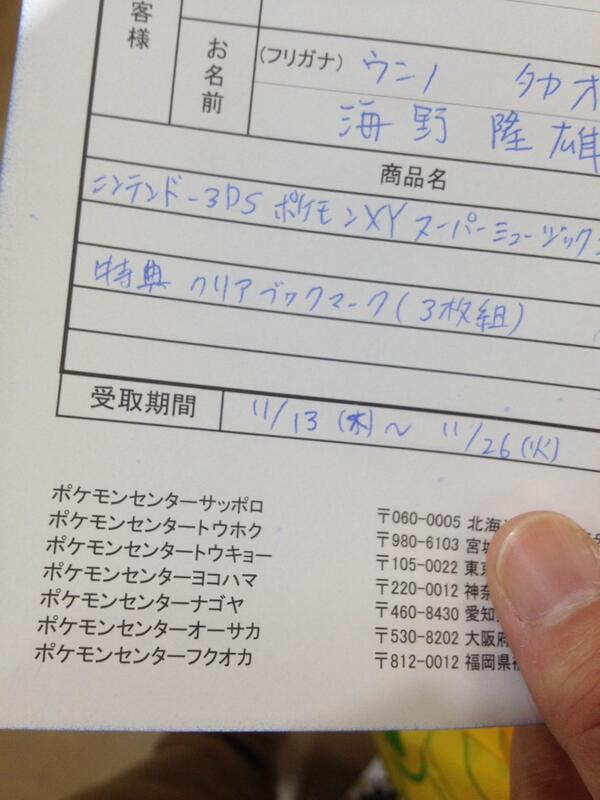 客様
お名前
(フリガナ) ウンノ タカオ
海野 隆雄
商品名
ニンテンドー3DS ポケモンXY スーパーミュージック
特典 クリアブックマーク(3枚組)
受取期間 11/13 (水) ~ 11/26 (火)
ポケモンセンターサッポロ 〒060-0005 北海
ポケモンセンタートウホク 〒980-6103 宮城
ポケモンセンタートウキョー 〒105-0022 東京
ポケモンセンターヨコハマ 〒220-0012 神奈
ポケモンセンターナゴヤ 〒460-8430 愛知
ポケモンセンターオーサカ 〒530-8202 大阪府
ポケモンセンターフクオカ 〒812-0012 福岡県